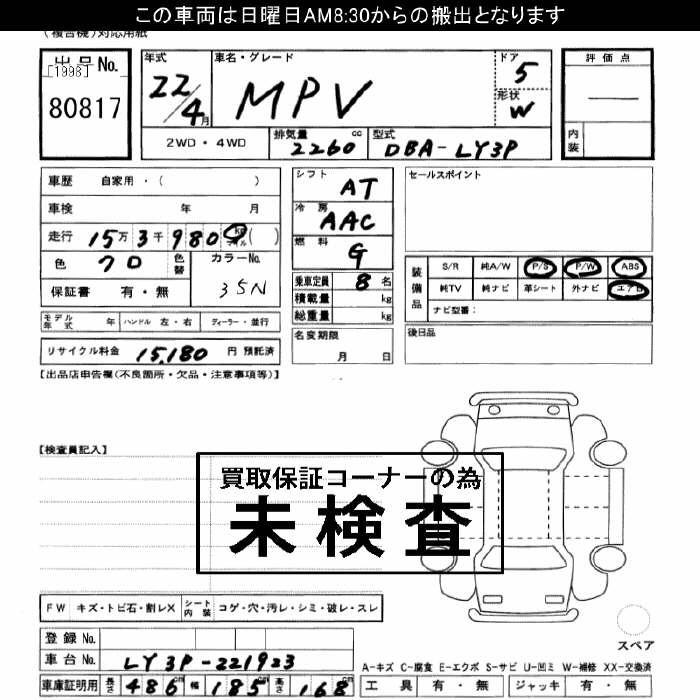 この車両は日曜日AM8:30からの搬出となります
(複合機)対応用紙
出品No.
[1998]
80817
年式
22/4月
車名・グレード
MPV
ドア
5
形状
W
評価点
—
内装
2WD・4WD
排気量
2260
cc
型式
DBA-LY3P
車歴 自家用・( )
車検 年 月
走行 15万3千980 km マイル ( )
色 クロ 色替
カラーNo.
35N
保証書 有・無
シフト AT
冷房 AAC
燃料 G
乗車定員 8名
積載量 kg
総重量 kg
セールスポイント
装備品
S/R 純A/W P/S P/W ABS
純TV 純ナビ 革シート 外ナビ エアB
ナビ型番:
モデル年式 年 ハンドル 左・右 ディーラー・並行
名変期限
月 日
後日品
リサイクル料金 15,180 円 預託済
【出品店申告欄(不良箇所・欠品・注意事項等)】
【検査員記入】
買取保証コーナーの為
未検査
FW キズ・トビ石・割レX シート内装 コゲ・穴・汚レ・シミ・破レ・スレ
スペア
登録No.
車台No. LY3P-221923
車庫証明用 長さ 486cm 幅 185cm 高さ 168cm
A-キズ C-腐食 E-エクボ S-サビ U-凹ミ W-補修 XX-交換済
工具 有・無 ジャッキ 有・無